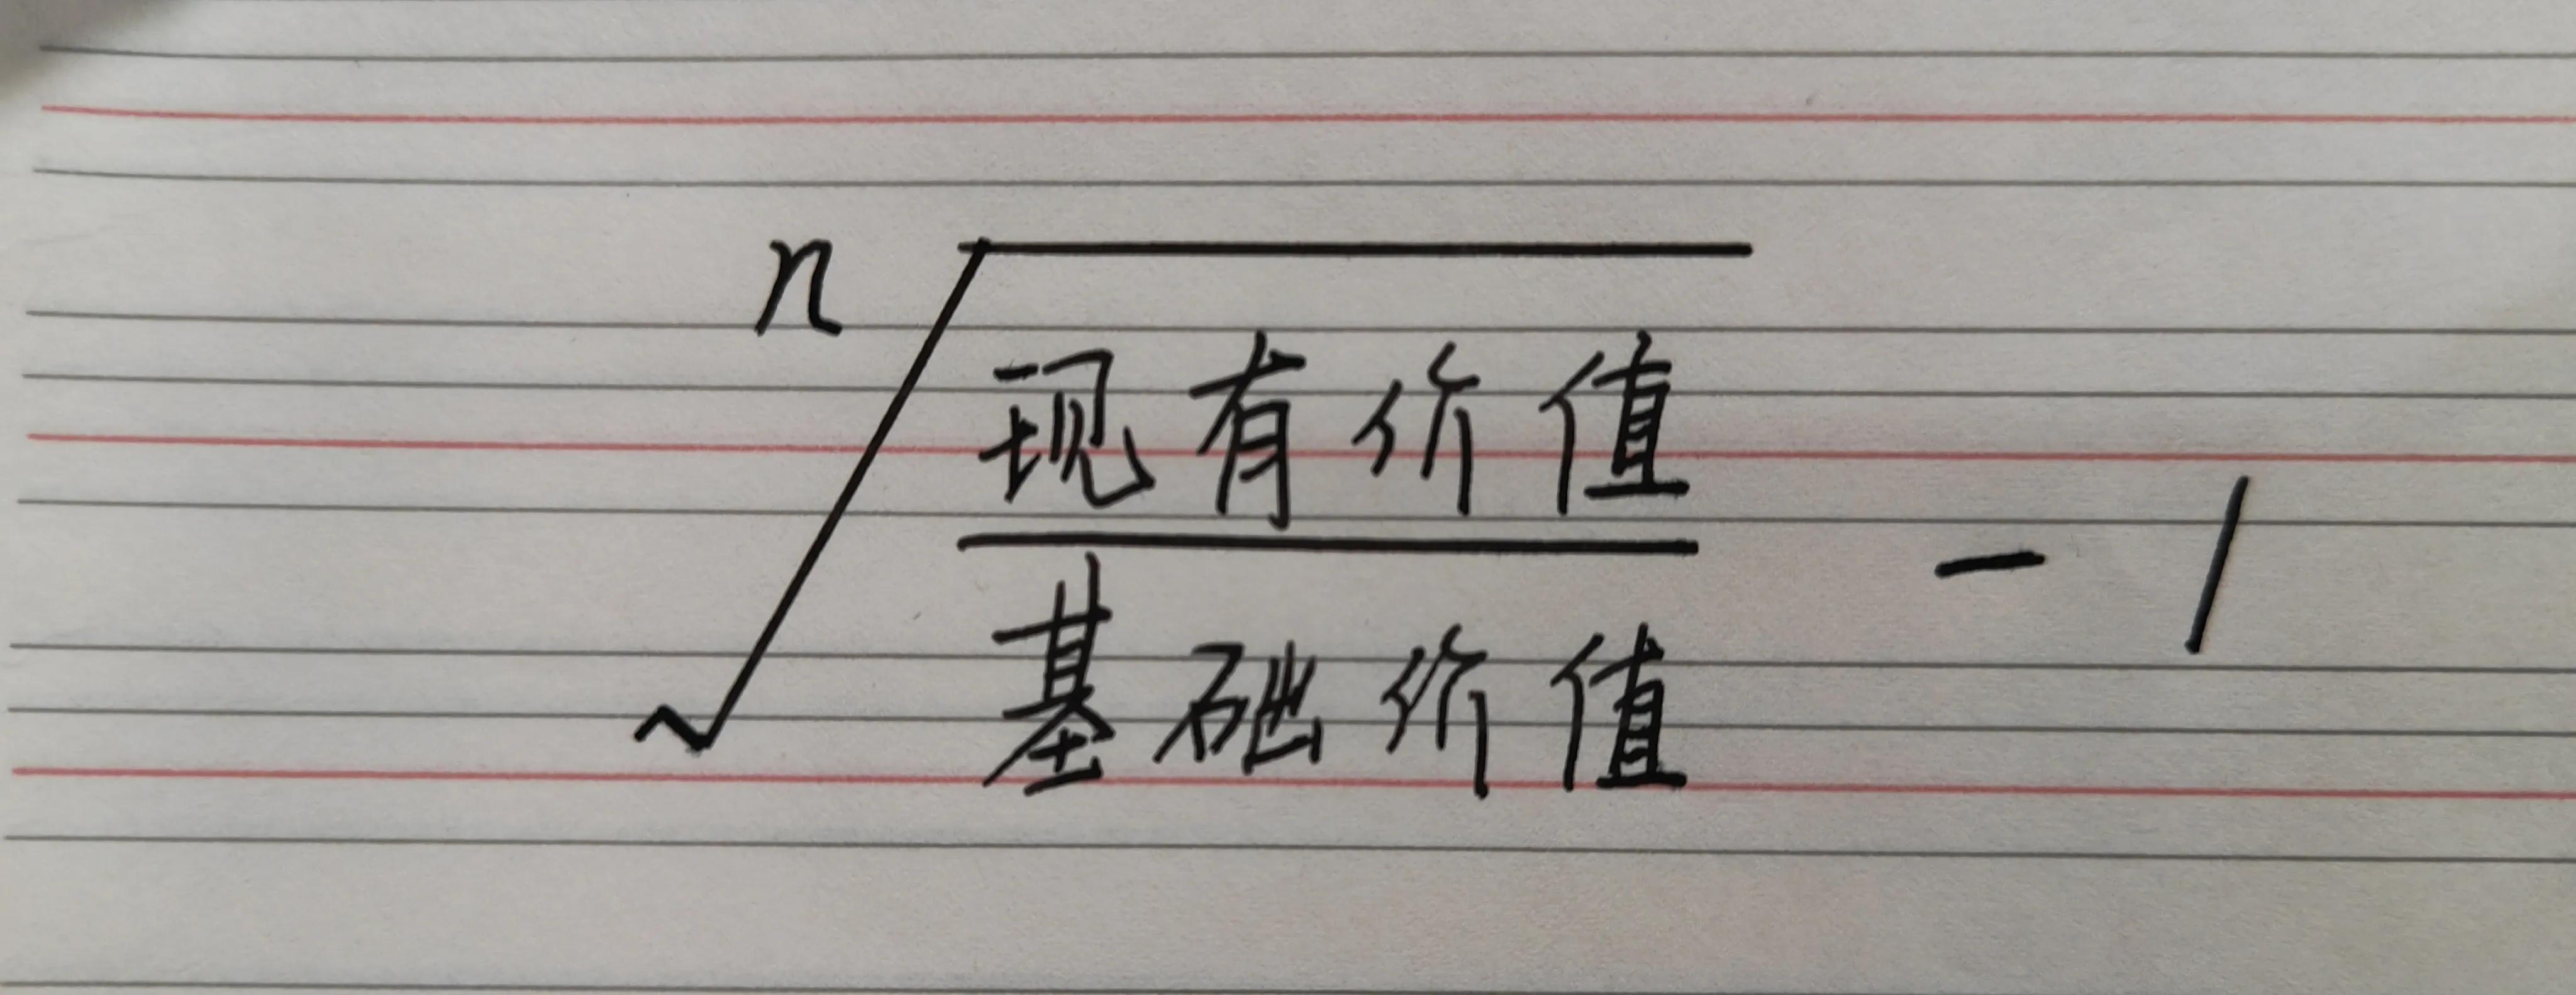 n
现有价值
基础价值
- 1